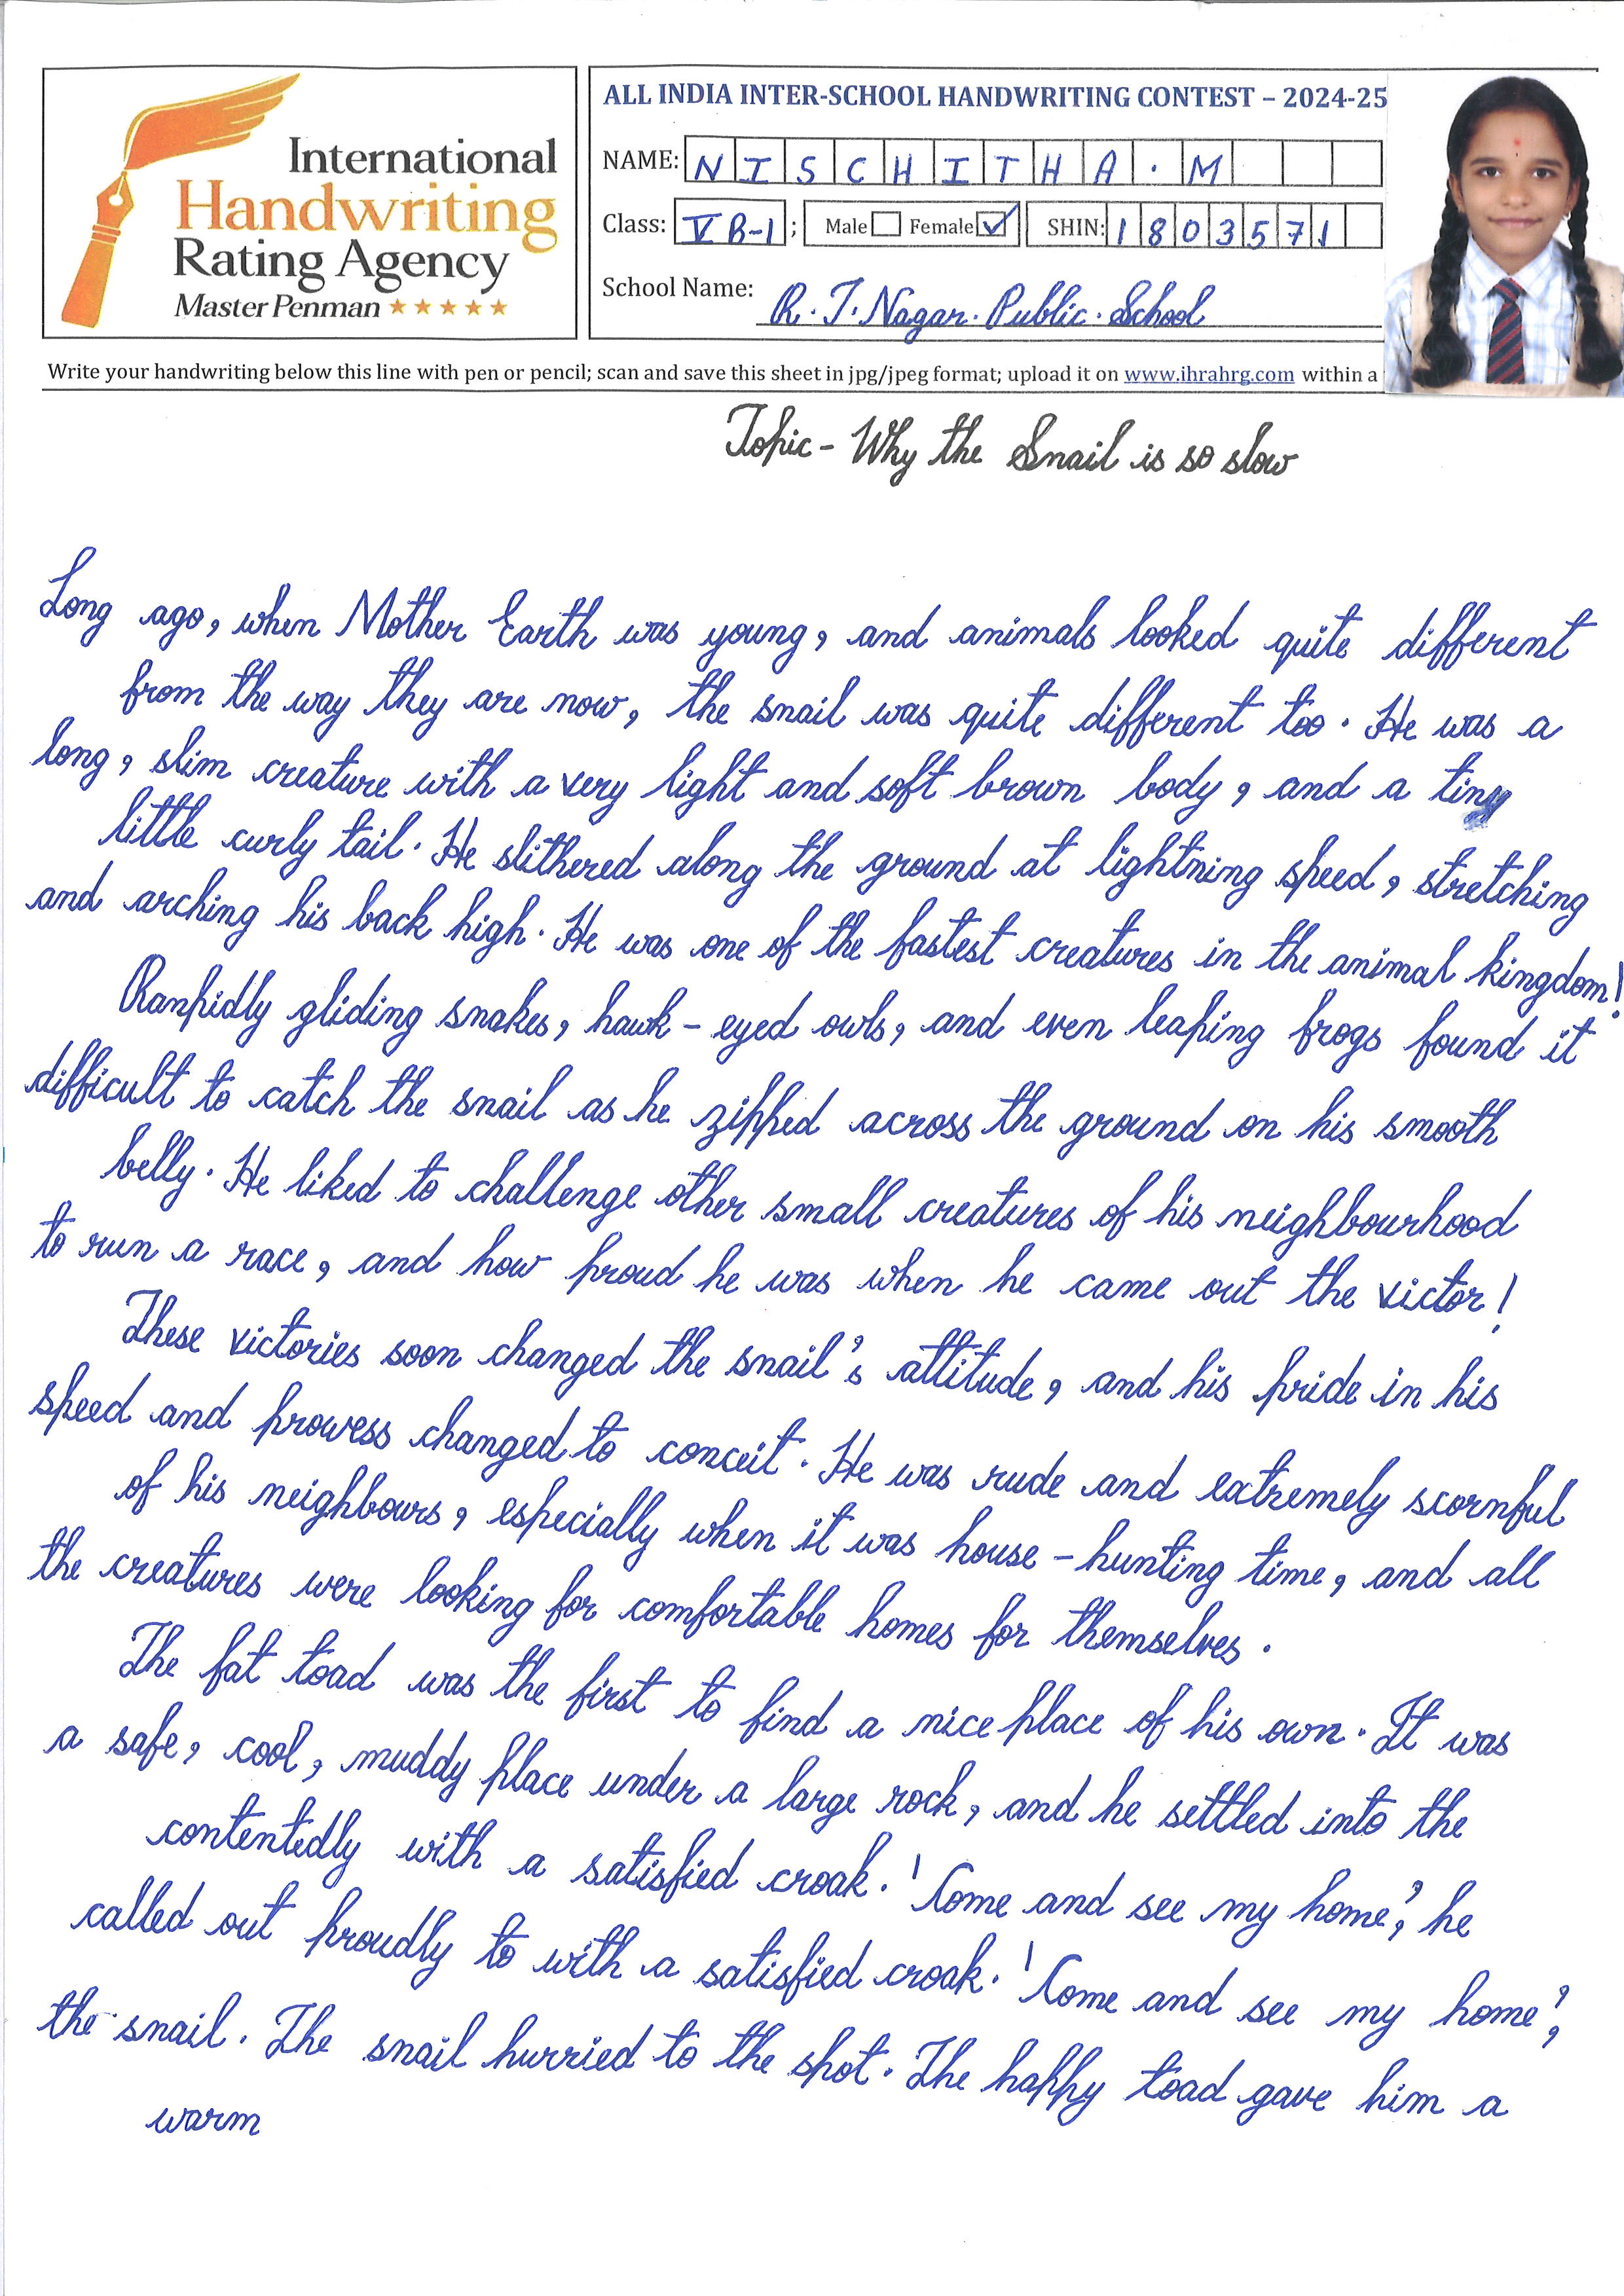 International
Handwriting
Rating Agency
Master Penman
ALL INDIA INTER-SCHOOL HANDWRITING CONTEST – 2024-25
NAME: NISCHITHA.M
Class: V B-1 ; Male Female ✓ SHIN: 1803571
School Name: R.T.Nagar.Public.School
Write your handwriting below this line with pen or pencil; scan and save this sheet in jpg/jpeg format; upload it on www.ihrahrg.com within a
Topic - Why the Snail is so slow
Long ago, when Mother Earth was young, and animals looked quite different
from the way they are now, the snail was quite different too. He was a
long, slim creature with a very light and soft brown body, and a tiny
little curly tail. He slithered along the ground at lightning speed, stretching
and arching his back high. He was one of the fastest creatures in the animal kingdom!
Ranpidly gliding snakes, hawk-eyed owls, and even leaping frogs found it
difficult to catch the snail as he zipped across the ground on his smooth
belly. He liked to challenge other small creatures of his neighbourhood
to run a race, and how proud he was when he came out the victor!
These victories soon changed the snail's attitude, and his pride in his
speed and prowess changed to conceit. He was rude and extremely scornful
of his neighbours, especially when it was house-hunting time, and all
the creatures were looking for comfortable homes for themselves.
The fat toad was the first to find a nice place of his own. It was
a safe, cool, muddy place under a large rock, and he settled into the
contentedly with a satisfied croak. 'Come and see my home', he
called out proudly to with a satisfied croak. 'Come and see my home',
the snail. The snail hurried to the spot. The happy toad gave him a
warm